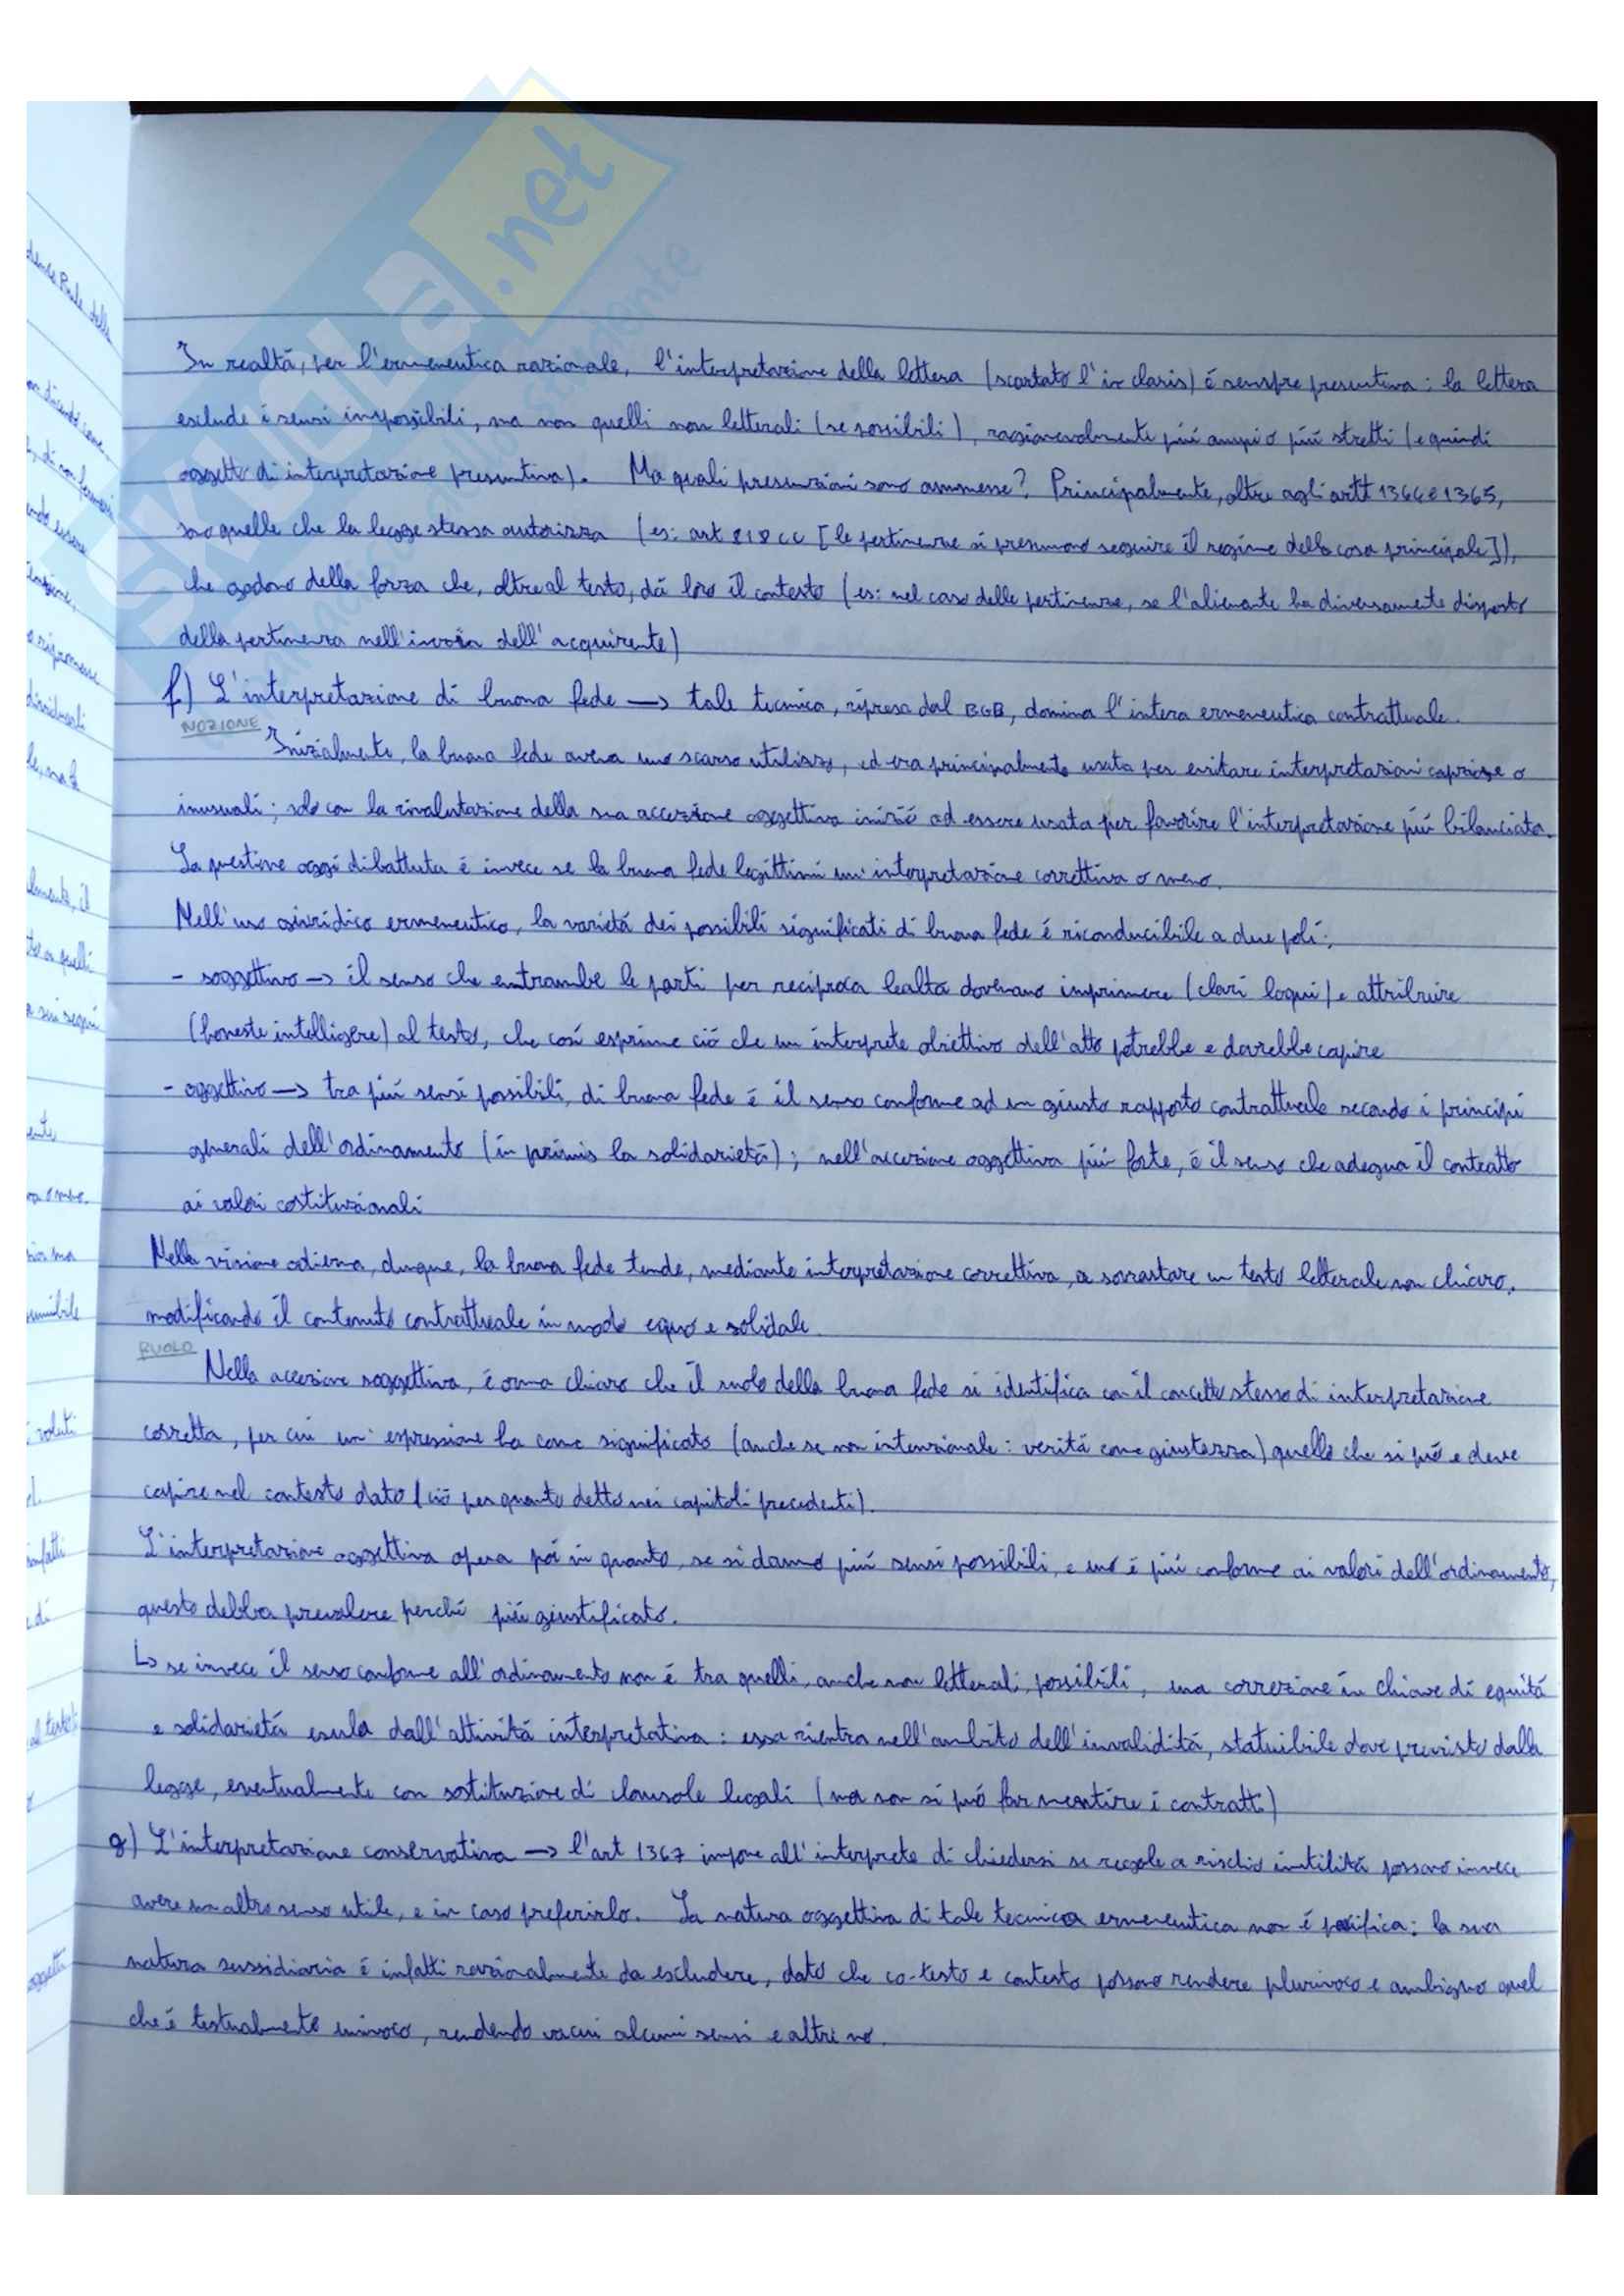 SKUOLA.net
In realtá, per l'ermeneutica razionale, l'interpretazione della lettera (scartato l'in claris) é sempre presuntiva: la lettera
esclude i sensi impossibili, ma non quelli non letterali (se possibili), ragionevolmente piú ampi o piú stretti (e quindi
oggetto di interpretazione presuntiva). Ma quali presunzioni sono ammesse? Principalmente, oltre agli artt 1364 e 1365,
sono quelle che la legge stessa autorizza (es: art 818 cc [le pertinenze si presumono seguire il regime della cosa principale]),
che godono della forza che, oltre al testo, dá loro il contesto (es: nel caso delle pertinenze, se l'alienante ha diversamente disposto
della pertinenza nell' dell'acquirente)
f) L'interpretazione di buona fede → tale tecnica, ripresa dal BGB, domina l'intera ermeneutica contrattuale.
NOZIONE
Inizialmente, la buona fede aveva uno scarso utilizzo, ed era principalmente usata per evitare interpretazioni capziose o
inusuali; solo con la rivalutazione della sua accezione oggettiva inizió ad essere usata per favorire l'interpretazione piú bilanciata.
La questione oggi dibattuta é invece se la buona fede legittimi un'interpretazione correttiva o meno.
Nell'uso giuridico ermeneutico, la varietá dei possibili significati di buona fede é riconducibile a due poli:
- soggettivo → il senso che entrambe le parti per reciproca lealtá dovevano imprimere (clari loqui) e attribuire
(honeste intelligere) al testo, che cosí esprime ció che un interprete obiettivo dell'atto potrebbe e dovrebbe capire
- oggettivo → tra piú sensi possibili, di buona fede é il senso conforme ad un giusto rapporto contrattuale secondo i principi
generali dell'ordinamento (in primis la solidarietá); nell'accezione oggettiva piú forte, é il senso che adegua il contratto
ai valori costituzionali
Nella visione odierna, dunque, la buona fede tende, mediante interpretazione correttiva, a sovrastare un testo letterale non chiaro,
modificando il contenuto contrattuale in modo equo e solidale.
RUOLO
Nella accezione soggettiva, é ormai chiaro che il ruolo della buona fede si identifica con il concetto stesso di interpretazione
corretta, per cui un'espressione ha come significato (anche se non intenzionale: veritá come giustezza) quello che si puó e deve
capire nel contesto dato (ció per quanto detto nei capitoli precedenti).
L'interpretazione oggettiva opera poi in quanto, se si danno piú sensi possibili, e uno é piú conforme ai valori dell'ordinamento,
questo debba prevalere perché piú giustificato.
↳ se invece il senso conforme all'ordinamento non é tra quelli, anche non letterali, possibili, una correzione in chiave di equitá
e solidarietá esula dall'attivitá interpretativa: essa rientra nell'ambito dell'invaliditá, statuibile dove previsto dalla
legge, eventualmente con sostituzione di clausole legali (ma non si puó far mentire i contratti)
g) L'interpretazione conservativa → l'art 1367 impone all'interprete di chiedersi se regole a rischio inutilitá possano invece
avere un altro senso utile, e in caso preferirlo. La natura oggettiva di tale tecnica ermeneutica non é pacifica: la sua
natura sussidiaria é infatti razionalmente da escludere, dato che co-testo e contesto possono rendere plurivoco e ambiguo quel
che é testualmente univoco, rendendo vacui alcuni sensi e altri no.